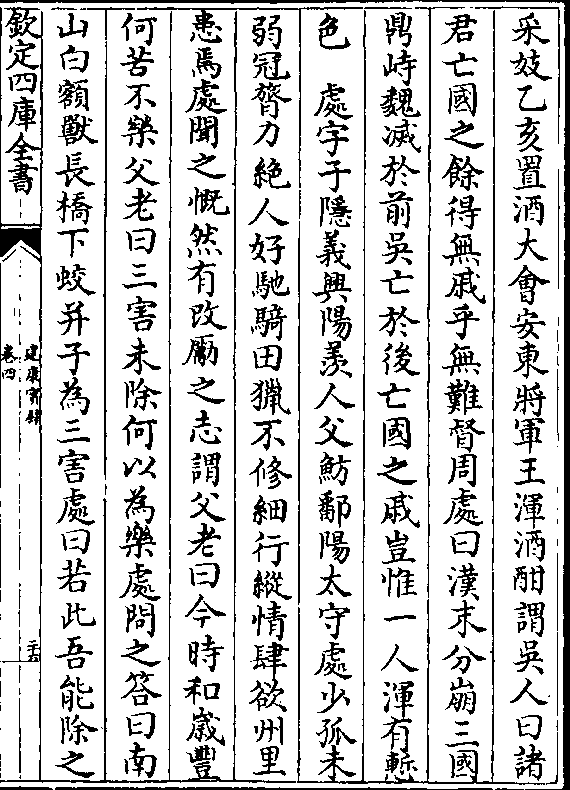 采妓乙亥置酒大會安東將軍王渾酒酣謂吳人曰諸
君亡國之餘得無戚乎無難督周處曰漢末分崩三國
鼎峙魏滅於前吳亡於後亡國之戚豈惟一人渾有慙
色　處字子隱義興陽羨人父魴鄱陽太守處少孤未
弱冠膂力絶人好馳騎田獵不修細行縱情肆欲州里
患焉處聞之慨然有改勵之志謂父老曰今時和歳豐
何苦不樂父老曰三害未除何以為樂處問之答曰南
山白額獸長橋下蛟并子為三害處曰若此吾能除之
欽定四庫全書
建康實錄
卷四
二十六